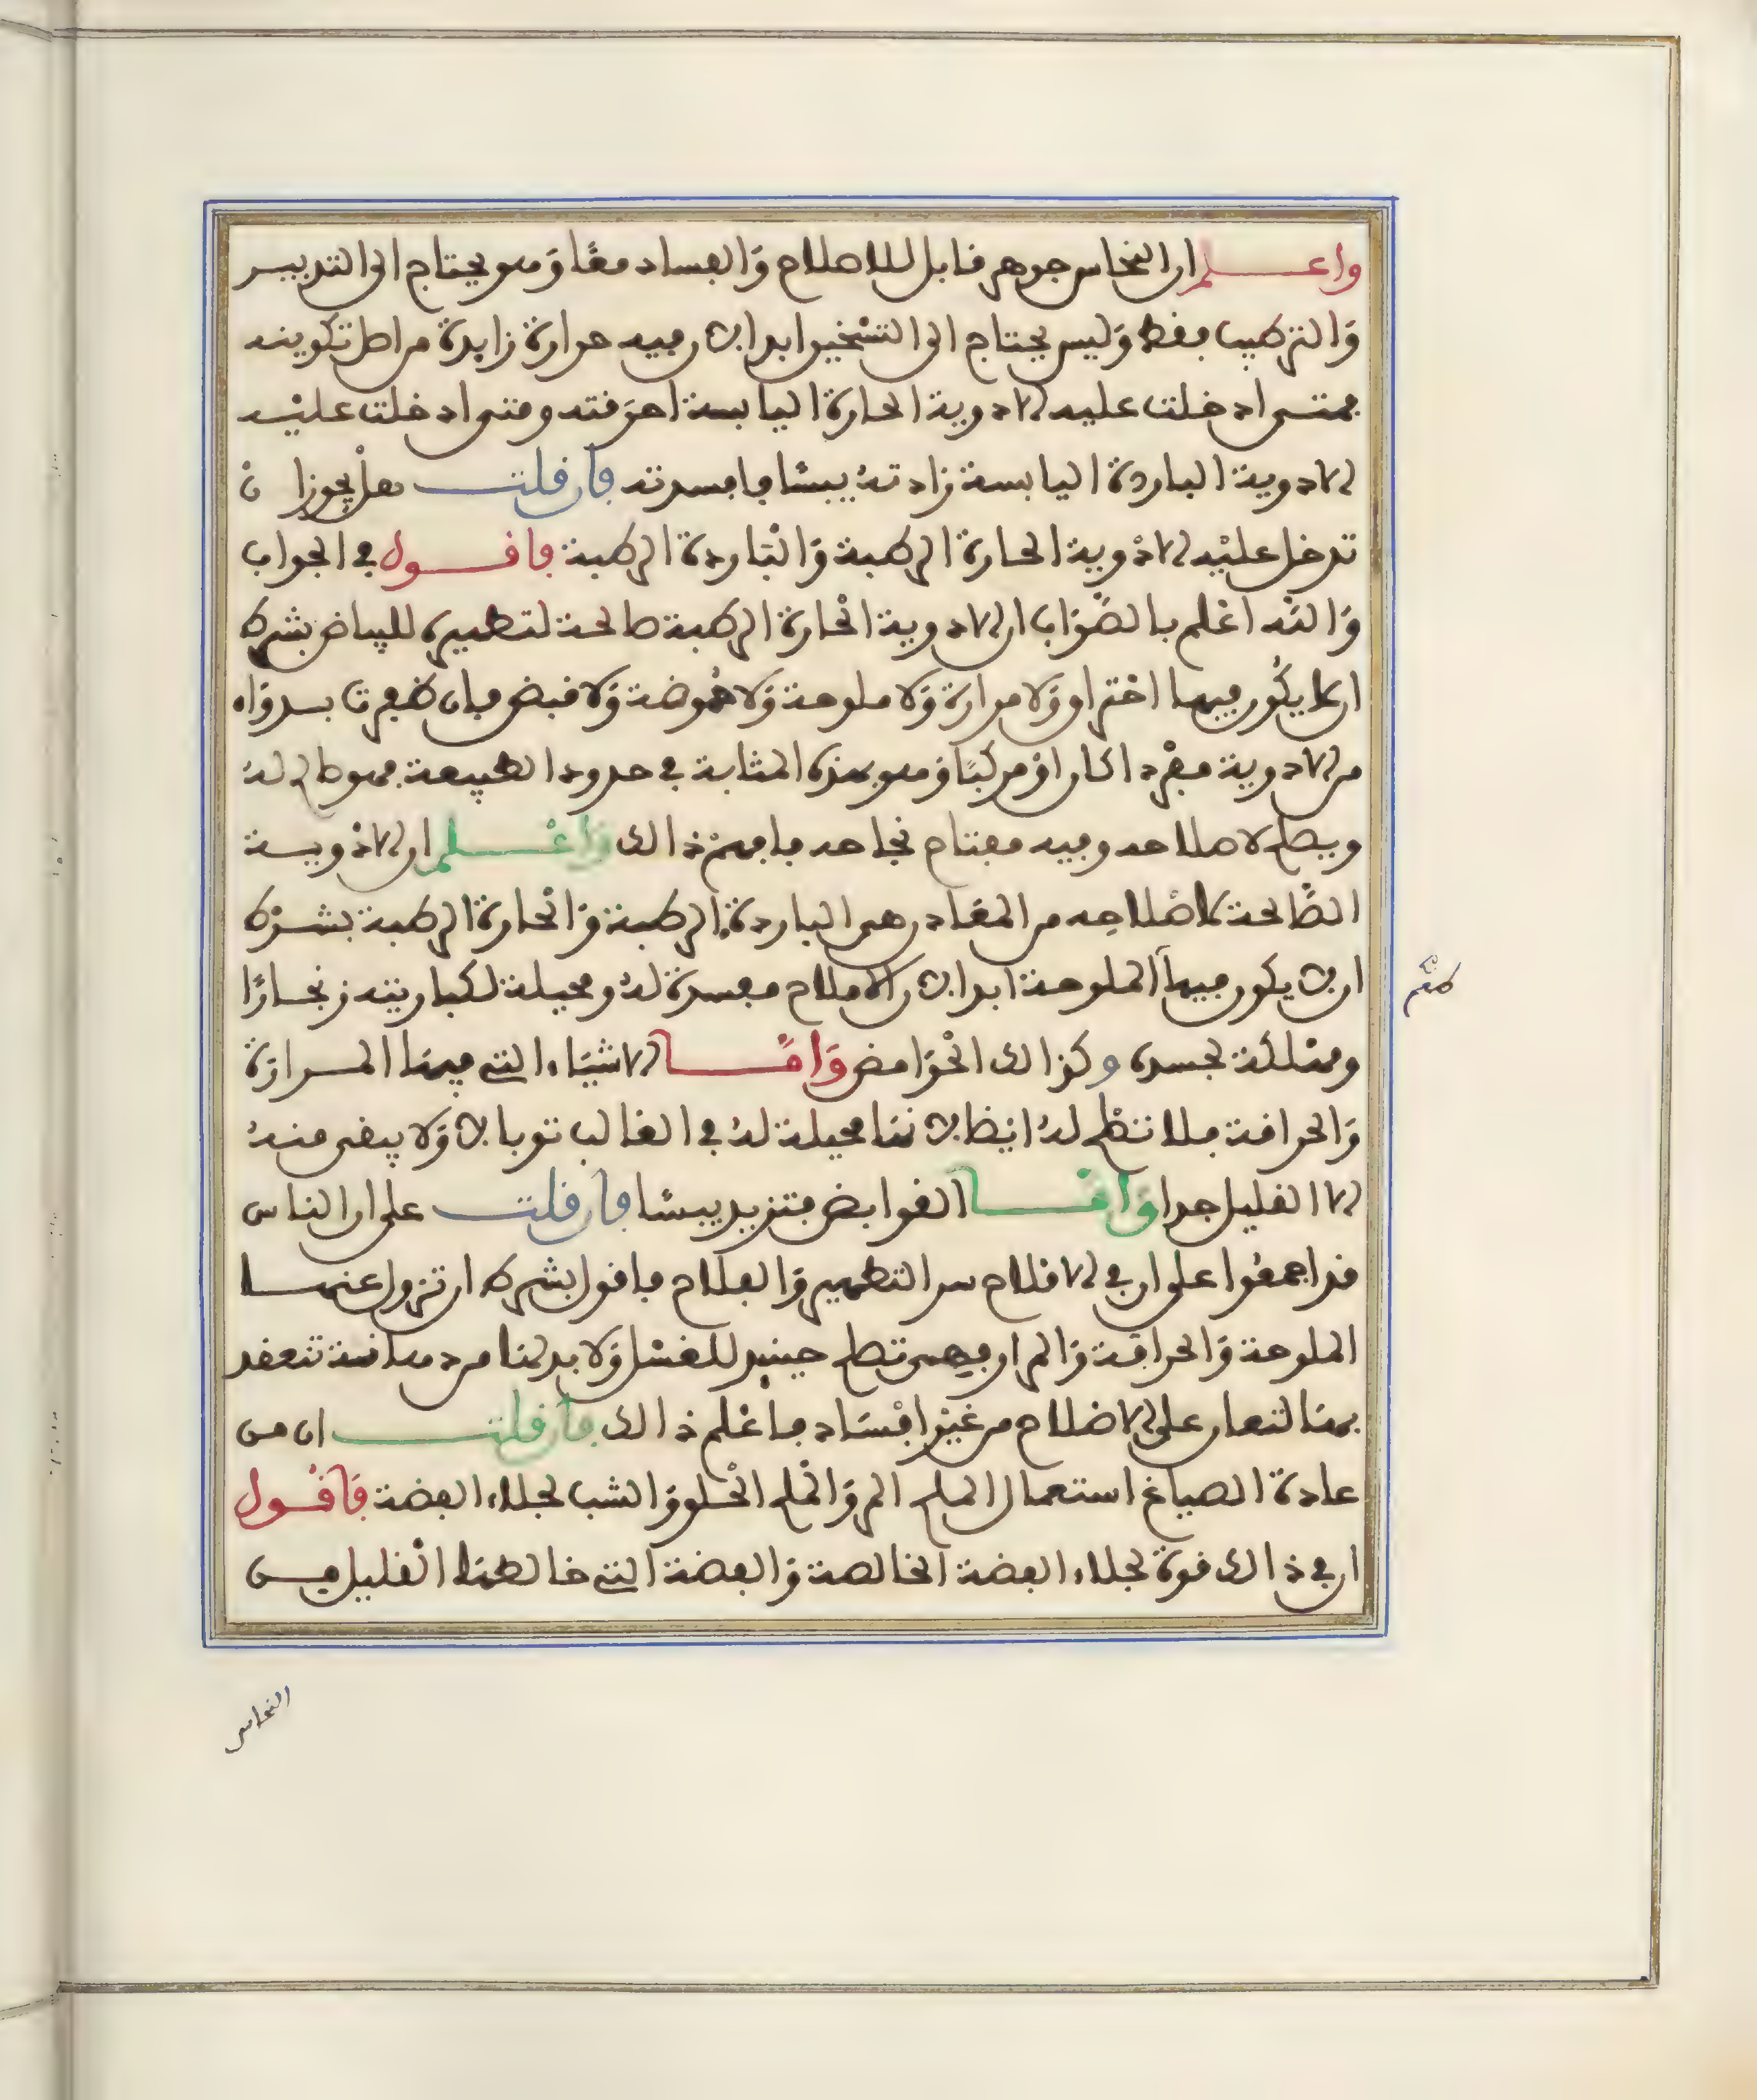 واعلم ان النحاس جوهر قابل للاصلاح وَالفساد معًا وَهو يحتاج الى التدبير
وَالترطيب فقط وَليس يحتاج الى التسخين ابدا لان فيه حرارة زايدة من اصل تكوينه
فمتى ادخلت عليه الادوية الحارة اليابسة احرقته ومتى ادخلت عليْه
الادوية الباردة اليابسة زادته يبسًا فافسدته فان قلت هل يجوز ان
تدخل عليْه الادْوية الحارة الرطبة وَالبَاردة الرطبة فاقول في الجواب
وَاللَه اعْلم بالصَّوَاب ان الادوية الحْارة الرطبة صالحة لتطهيره للبياض بشرط
ان لا يكُون فيها احتراق وَلا مرارة وَلا ملوحة وَلا حُموضة وَلا قبض فان ظفرت بدوَاء
من الادوية مفْردا كان اوْ مركبًا وَهو بهذه المثابة في حدود الطبيعة فهو صالح لهُ
ويصلح لاصلاحه وفيه مفتاح نجاحه فافهمْ ذالك وَاعْلم ان الادْوية
الصَّالحة لاصْلاحِه من المعَادن هي الباردة الرطبة وَالْحارة الرطبة بشرْط
ان لا يكون فيها الملوحة ابدا لان الاملاح مفسدة لهُ ومحيلة لكباريته زنجارًا
ومهلكة لجسده وكذالك الْحوَامض وَامَّا الاشيَاء التي فيهَا المرارَة
وَالحرافة فلا تصْلح لهُ ايضا لانهَا محيلة لهُ في الغالب توبالا وَلا يبقى منهُ
الا القليل جدا وَامَّا القوابض فتزيد يبسًا فان قلت على ان الناس
قد اجمعُوا على ان في الاملاح سر التطهير وَالفلاح فاقول بشرط ان تزول عنها
الملوحة وَالحرافة وَالمرار فهي تصلح حينيذ للغسْل وَلا بد لهَا من دهانة تنعقد
بهَا لتعان على الاصْلاح من غيْر افسَاد فاعْلم ذالك فان قلت ان من
عادة الصياغ استعمال الملح المر وَالْملح الْحلو وَالشب لجلاء الفضة فَاقُول
ان في ذالك قوة لجلاء الفضة الخالصة وَالفضة التي خالطهَا الْقليل من
النحاس